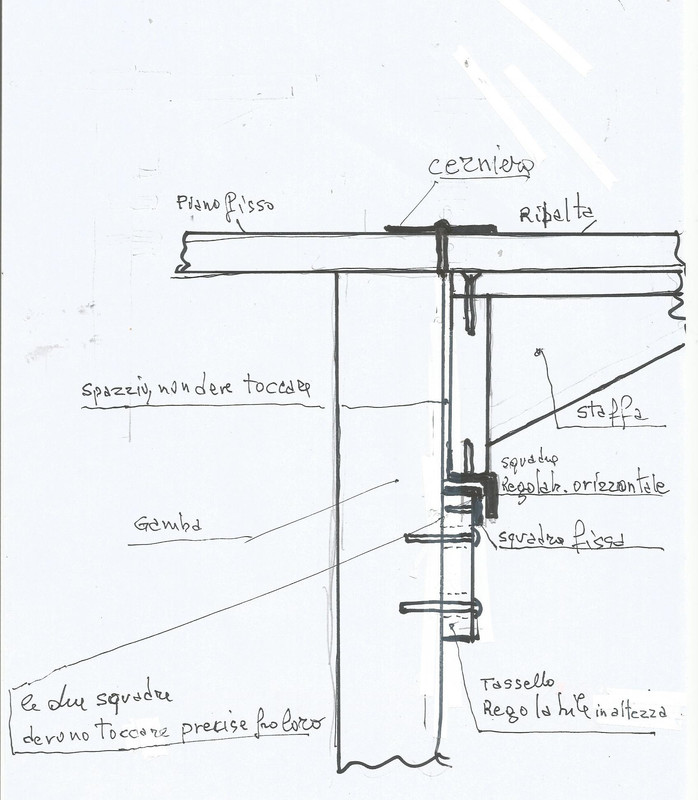 cerniera
Piano fisso
Ripalta
Spazzio, non deve toccare
staffa
squadra
Regolab. orizzontale
Gamba
squadra fissa
le due squadre
devono toccare precise fra loro
Tassello
Regolabile in altezza